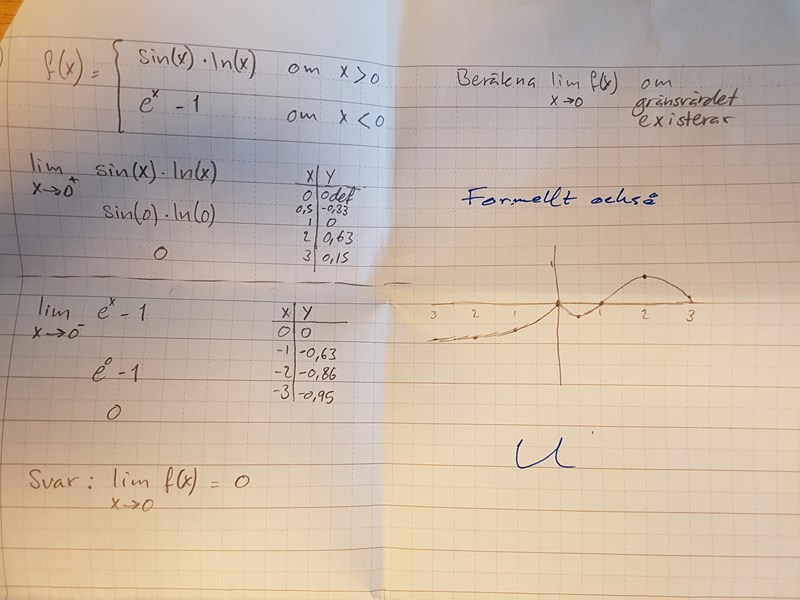 f(x) = { sin(x) · ln(x) om x > 0
e^x - 1 om x < 0
Beräkna lim f(x) om
x→0 gränsvärdet
existerar
lim sin(x) · ln(x)
x→0^+
sin(0) · ln(0)
0
x | y
0 | odef
0,5 | -0,33
1 | 0
2 | 0,63
3 | 0,15
Formellt också
lim e^x - 1
x→0^-
e^0 - 1
0
x | y
0 | 0
-1 | -0,63
-2 | -0,86
-3 | -0,95
3 2 1 1 2 3
Svar: lim f(x) = 0
x→0